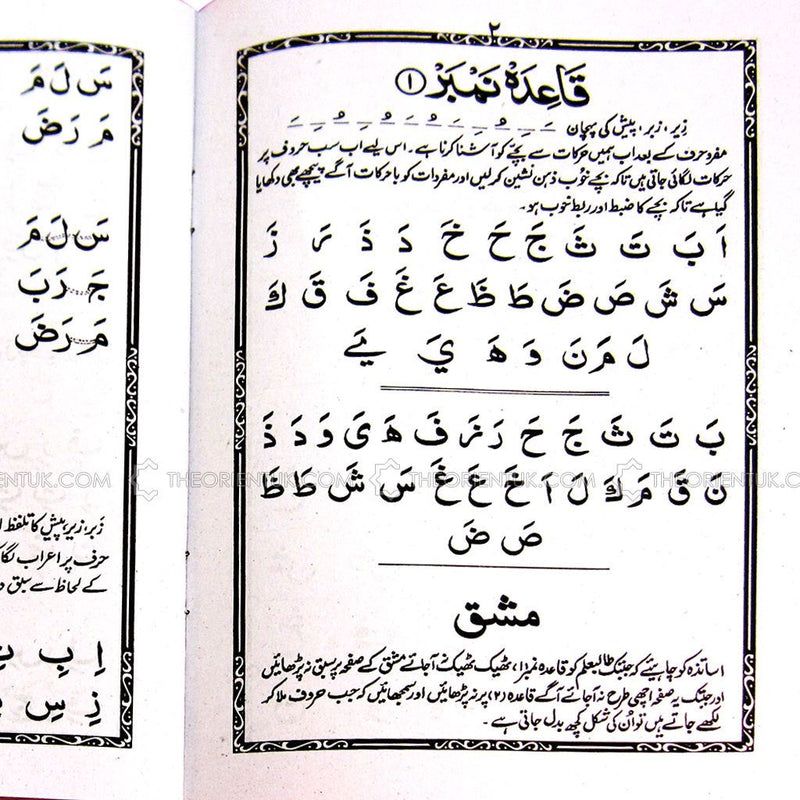 ۲
قَاعِدَہ نَمْبَر ①
زیر، زبر، پیش کی پہچان
مفرد حرف کے بعد اب ہمیں حرکات سے بچّے کو آشنا کرنا ہے۔ اس لیے اب سب حروف پر
حرکات لگائی جاتی ہیں تاکہ بچے خوب ذہن نشین کر لیں اور مفردات کو با حرکات آگے پیچھے بھی دکھایا
گیا ہے تاکہ بچے کا ضبط اور ربط خوب ہو۔
اَ بَ تَ ثَ جَ حَ خَ دَ ذَ رَ زَ
سَ شَ صَ ضَ طَ ظَ عَ غَ فَ قَ كَ
لَ مَ نَ وَ هَ يَ ےَ
بَ تَ ثَ جَ حَ رَ زَ فَ هَ یَ وَ دَ ذَ
نَ قَ مَ كَ لَ اَ خَ عَ غَ سَ شَ طَ ظَ
صَ ضَ
مشق
اساتذہ کو چاہیئے کہ جبتک طالبعلم کو قاعدہ نمبر۱، ٹھیک ٹھیک نہ آجائے مشق کے صفحہ پر سبق نہ پڑھائیں
اور جبتک یہ صفحہ اچھی طرح نہ آجائے آگے قاعدہ (۲) پر نہ پڑھائیں اور سمجھائیں کہ جب حروف ملا کر
لکھے جاتے ہیں تو اُن کی شکل کچھ بدل جاتی ہے۔
سَ لَ مَ
مَ رَ ضَ
سَ لَ مَ
جَ رَ بَ
مَ رَ ضَ
زبر، زیر، پیش کا تلفظ
حرف پر اعراب
کے لحاظ سے سبق
اِ بِ
زِ سِ
THEORIENTUK.COM THEORIENTUK.COM THEORIENTUK.COM